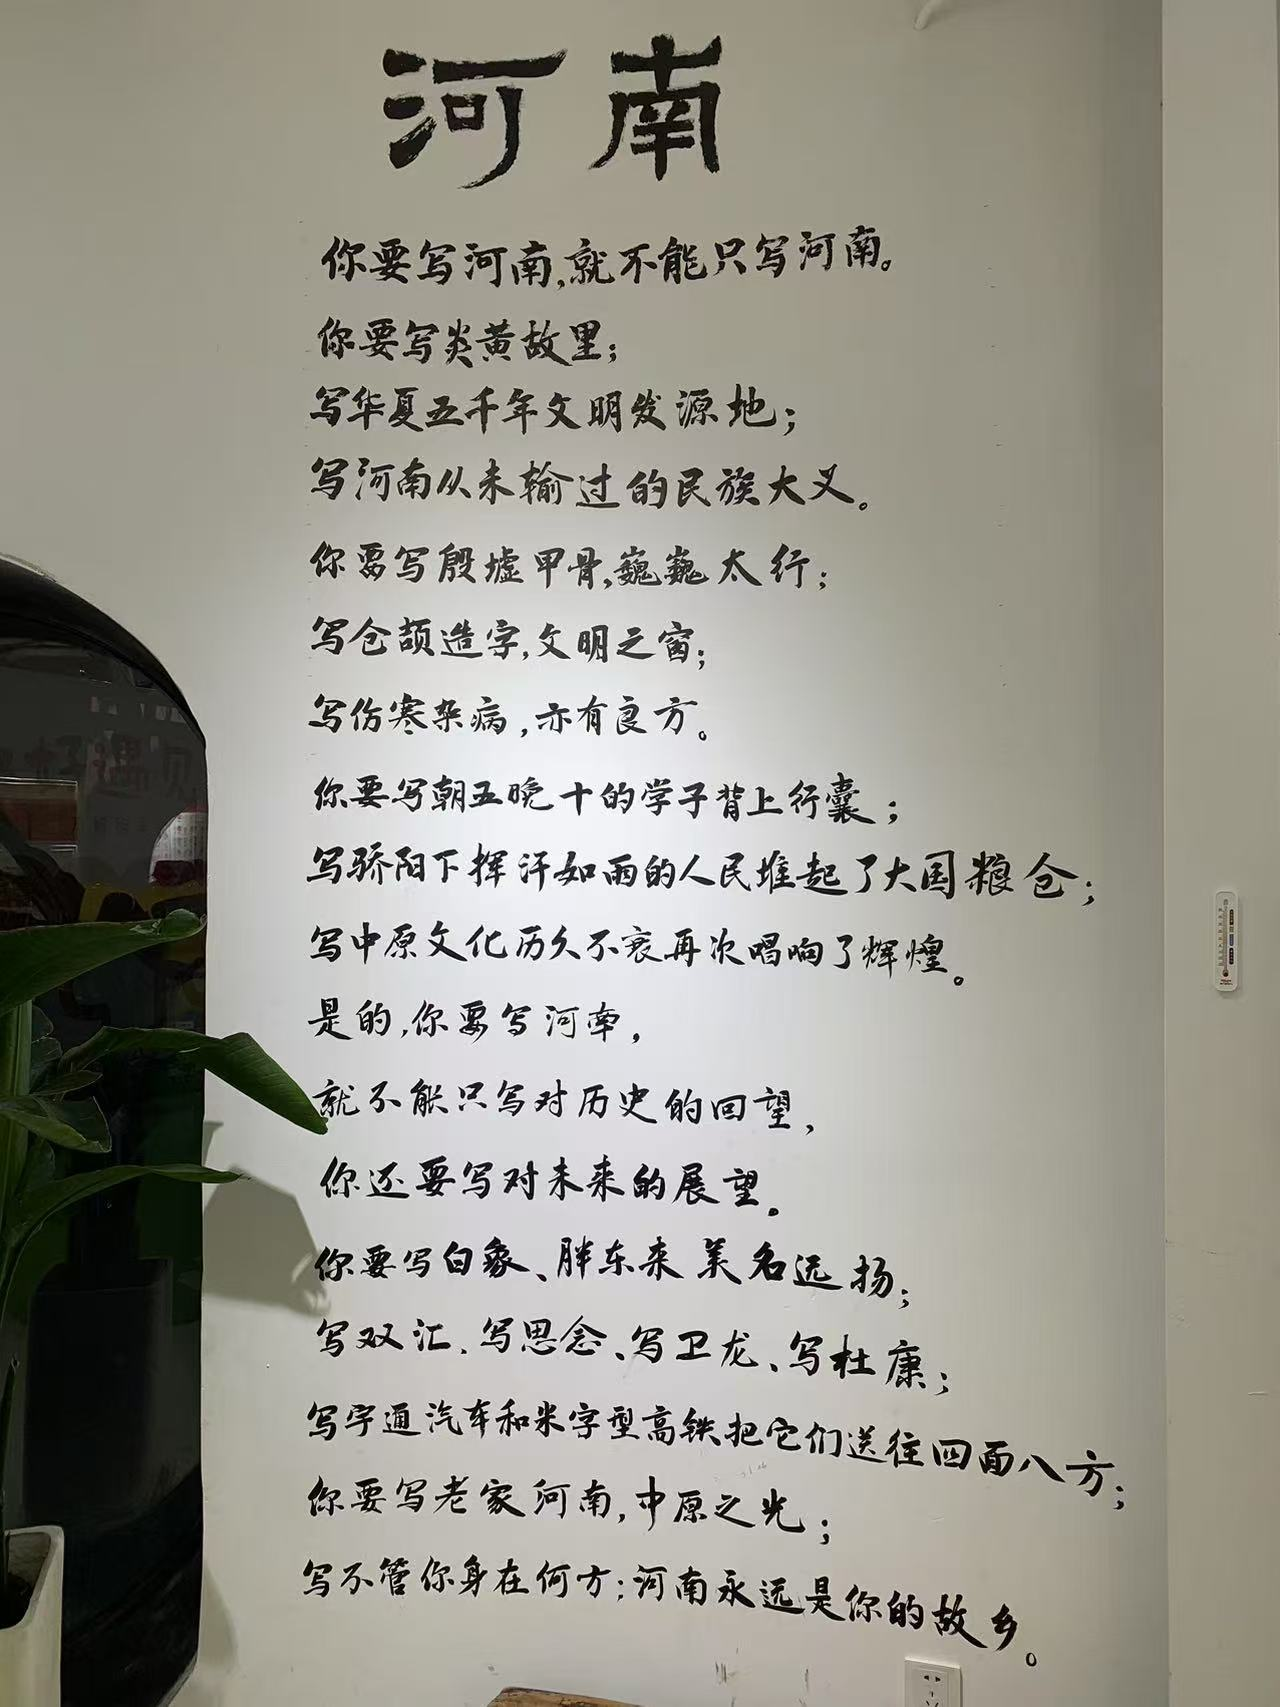 河南
你要写河南,就不能只写河南。
你要写炎黄故里;
写华夏五千年文明发源地;
写河南从未输过的民族大义。
你要写殷墟甲骨,巍巍太行;
写仓颉造字,文明之窗;
写伤寒杂病,亦有良方。
你要写朝五晚十的学子背上行囊;
写骄阳下挥汗如雨的人民堆起了大国粮仓;
写中原文化历久不衰再次唱响了辉煌。
是的,你要写河南,
就不能只写对历史的回望,
你还要写对未来的展望。
你要写白象、胖东来美名远扬;
写双汇、写思念、写卫龙、写杜康;
写宇通汽车和米字型高铁把它们送往四面八方;
你要写老家河南,中原之光;
写不管你身在何方;河南永远是你的故乡。
遇见